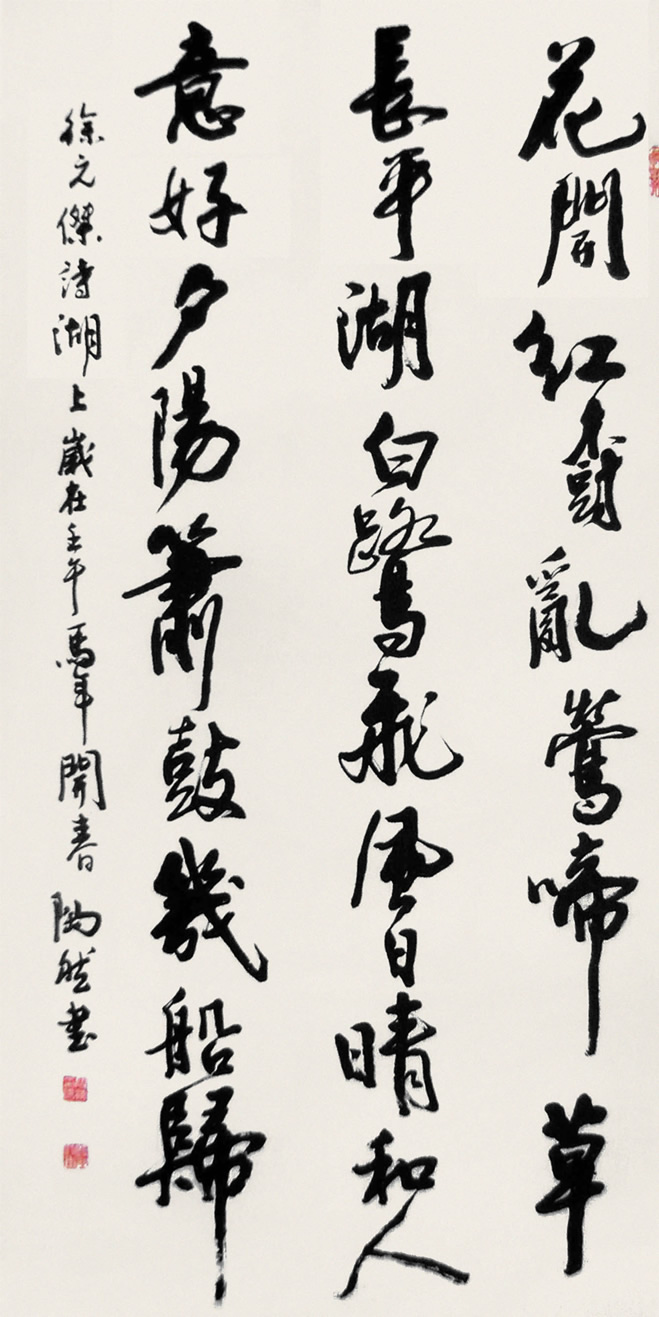 花開紅樹亂鶯啼草
長平湖白鷺飛風日晴和人
意好夕陽簫鼓幾船歸
徐元傑詩湖上歲在壬午馬年開春陶然書